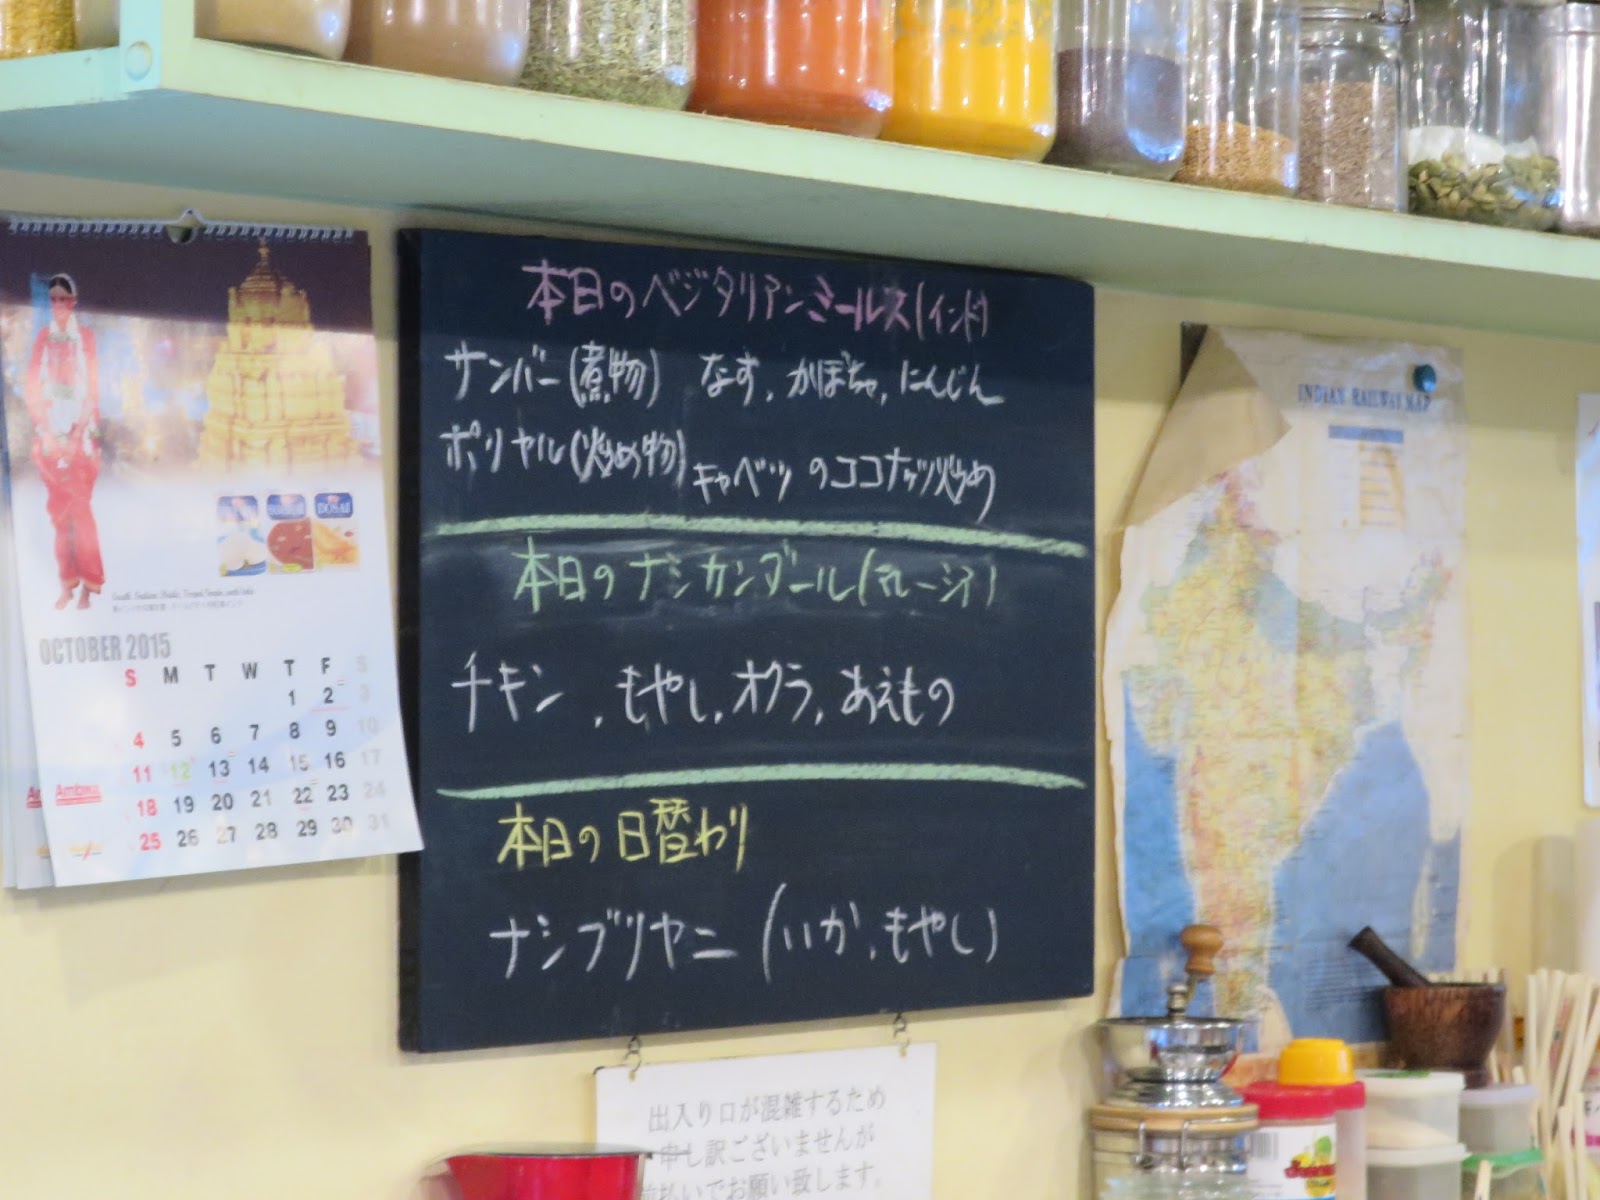 本日のベジタリアンミールス(インド)
サンバー(煮物) なす、かぼちゃ、にんじん
ポリヤル(炒め物) キャベツのココナッツ炒め
本日のナシカンダール(マレーシア)
チキン、もやし、オクラ、あえもの
本日の日替わり
ナシブリヤニ(いか、もやし)
出入り口が混雑するため
申し訳ございませんが
前払いでお願い致します。
OCTOBER 2015
S M T W T F S
1 2 3
4 5 6 7 8 9 10
11 12 13 14 15 16 17
18 19 20 21 22 23 24
25 26 27 28 29 30 31
DOSAI
INDIAN RAILWAY MAP